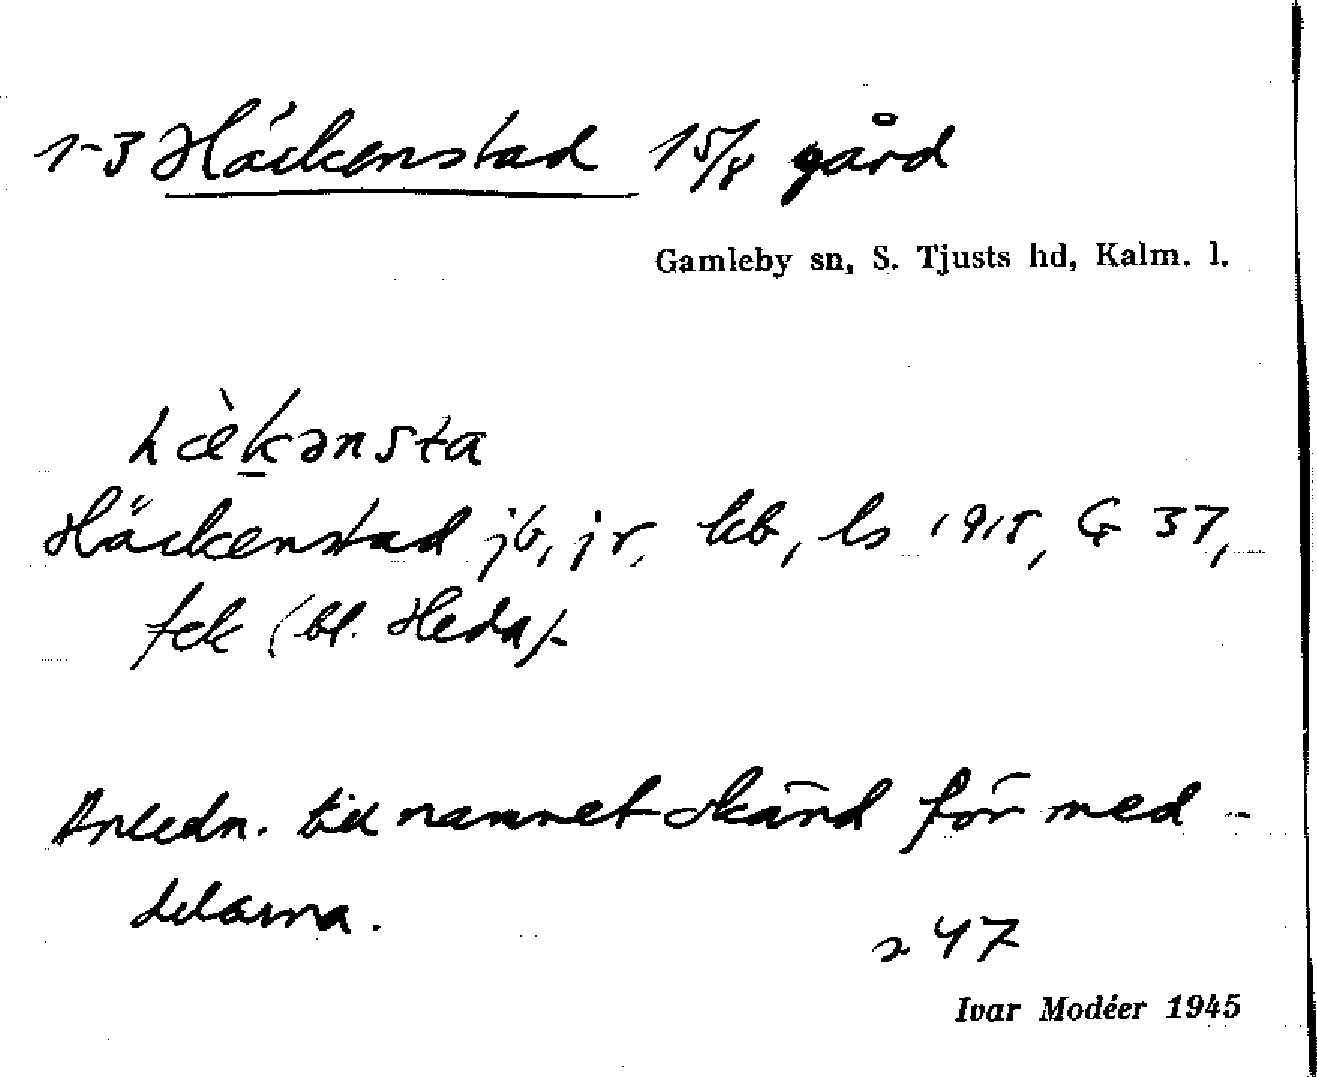 1-3 Häckenstad 15/8 gård
Gamleby sn, S. Tjusts hd, Kalm. l.
hæ̀k̠ənsta
Häckenstad jb, jr, kb, ls 1915, G 37,
fck (bl. Heda).
Anledn. till namnet okänd för med-
delarna.
247
Ivar Modéer 1945